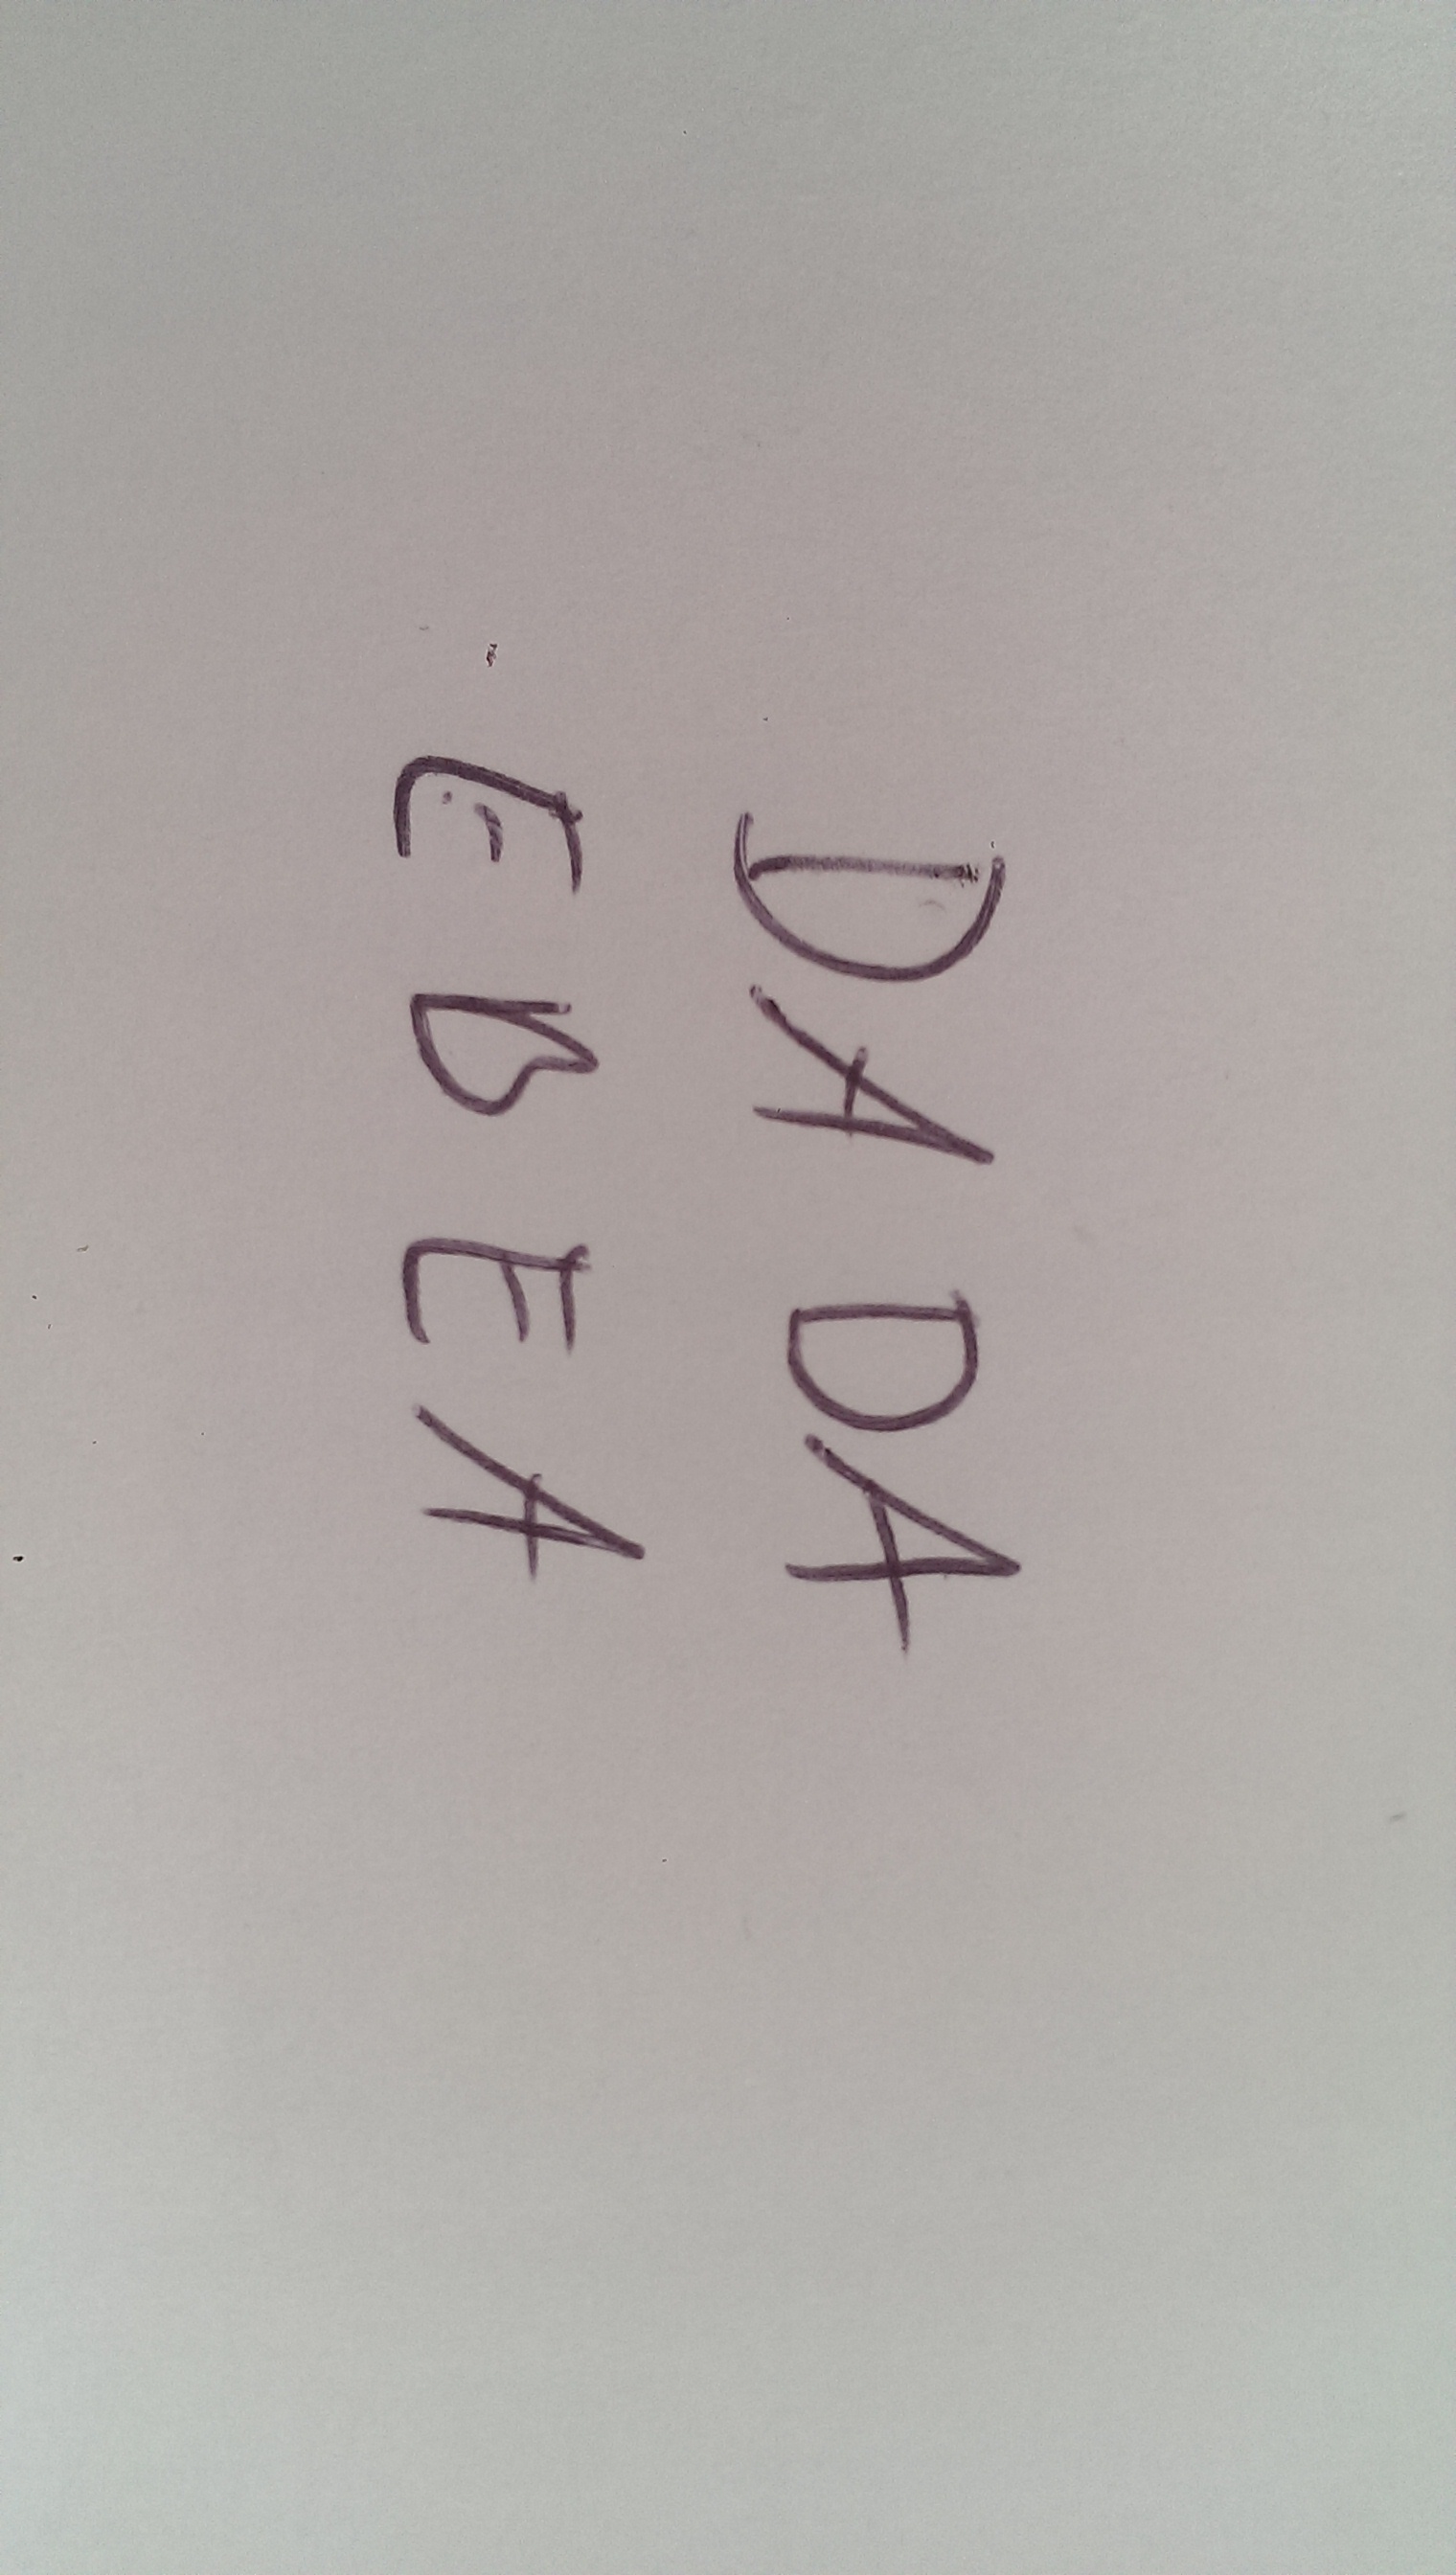 DADA
EBEA